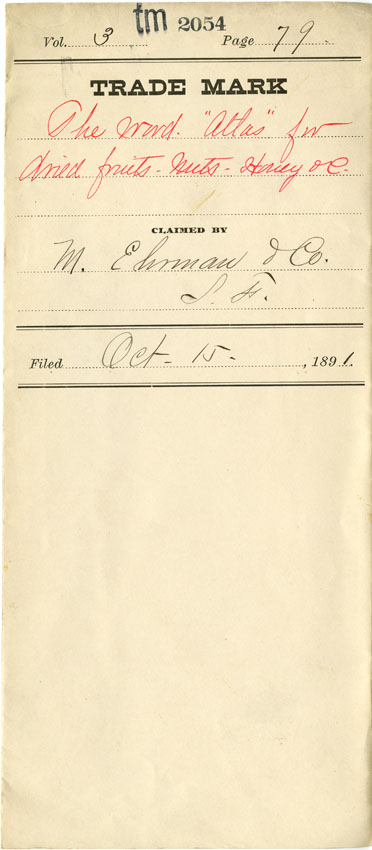 tm 2054
Vol. 3 Page 79.
TRADE MARK
The word "Atlas" for
dried fruits - Nuts - Honey &C.
CLAIMED BY
M. Ehrman & Co.
S. F.
Filed Oct - 15 - , 1891.